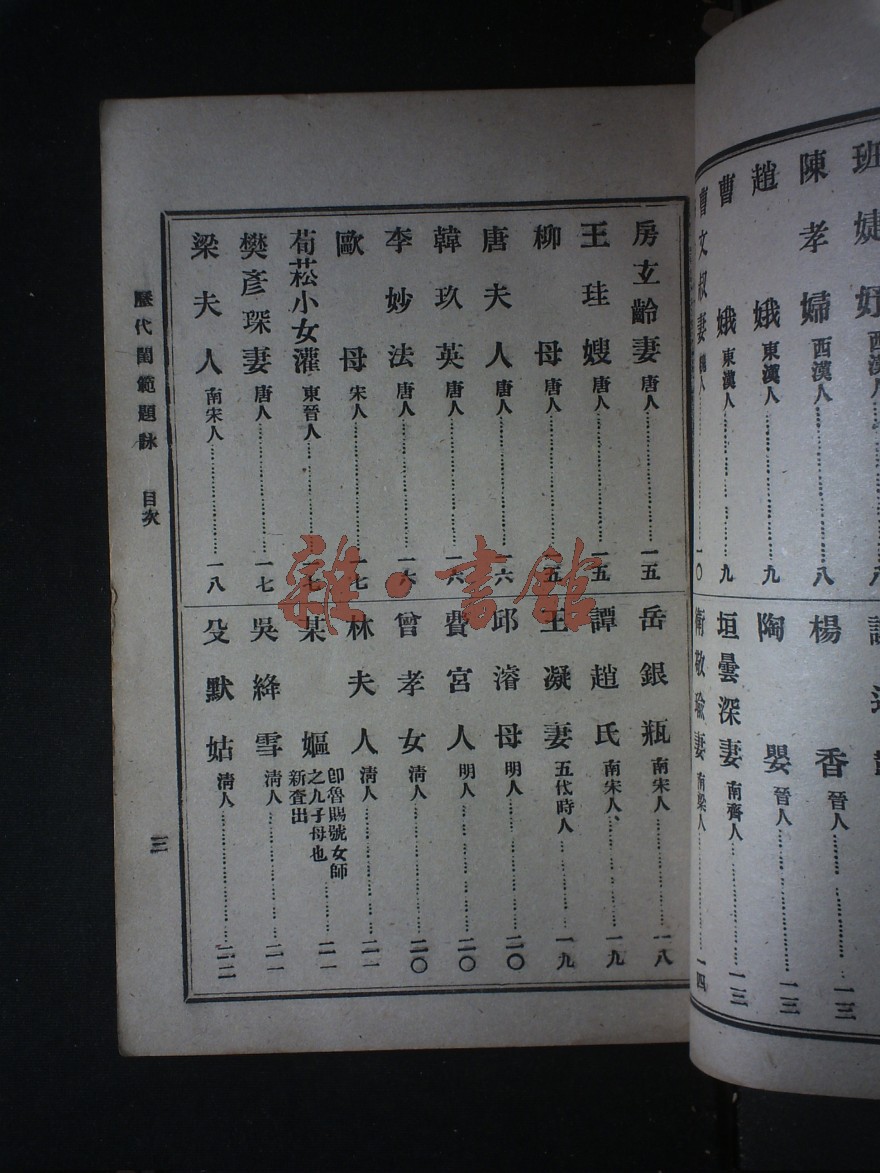 班婕妤 西漢人 八
陳孝婦 西漢人 八
趙娥 東漢人 九
曹娥 東漢人 九
曹文叔妻 魏人 一〇
楊香 晉人 一三
陶嬰 晉人 一三
垣曇深妻 南齊人 一三
衛敬瑜妻 南梁人 一四
房玄齡妻 唐人 一五
王珪嫂 唐人 一五
柳母 唐人 一五
唐夫人 唐人 一六
韓玖英 唐人 一六
李妙法 唐人 一六
歐母 宋人 一七
荀菘小女灌 東晉人 一七
樊彥琛妻 唐人 一七
梁夫人 南宋人 一八
岳銀瓶 南宋人 一八
譚趙氏 南宋人 一九
王凝妻 五代時人 一九
邱濬母 明人 二〇
費宮人 明人 二〇
曾孝女 清人 二〇
林夫人 清人 二一
某嫗 卽魯賜號女師之九子母也新查出 二一
吳絳雪 清人 二一
殳默姑 清人 二二
歷代閨範題詠 目次
三
雜·書館